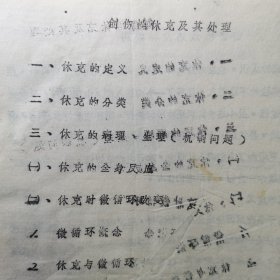 创伤性休克及其处理
一、休克的定义
二、休克的分类
三、休克的病理、生理(机制问题)
㈠、休克的全身反应
㈡、休克时微循环
1、微循环概念
2、休克与微循环